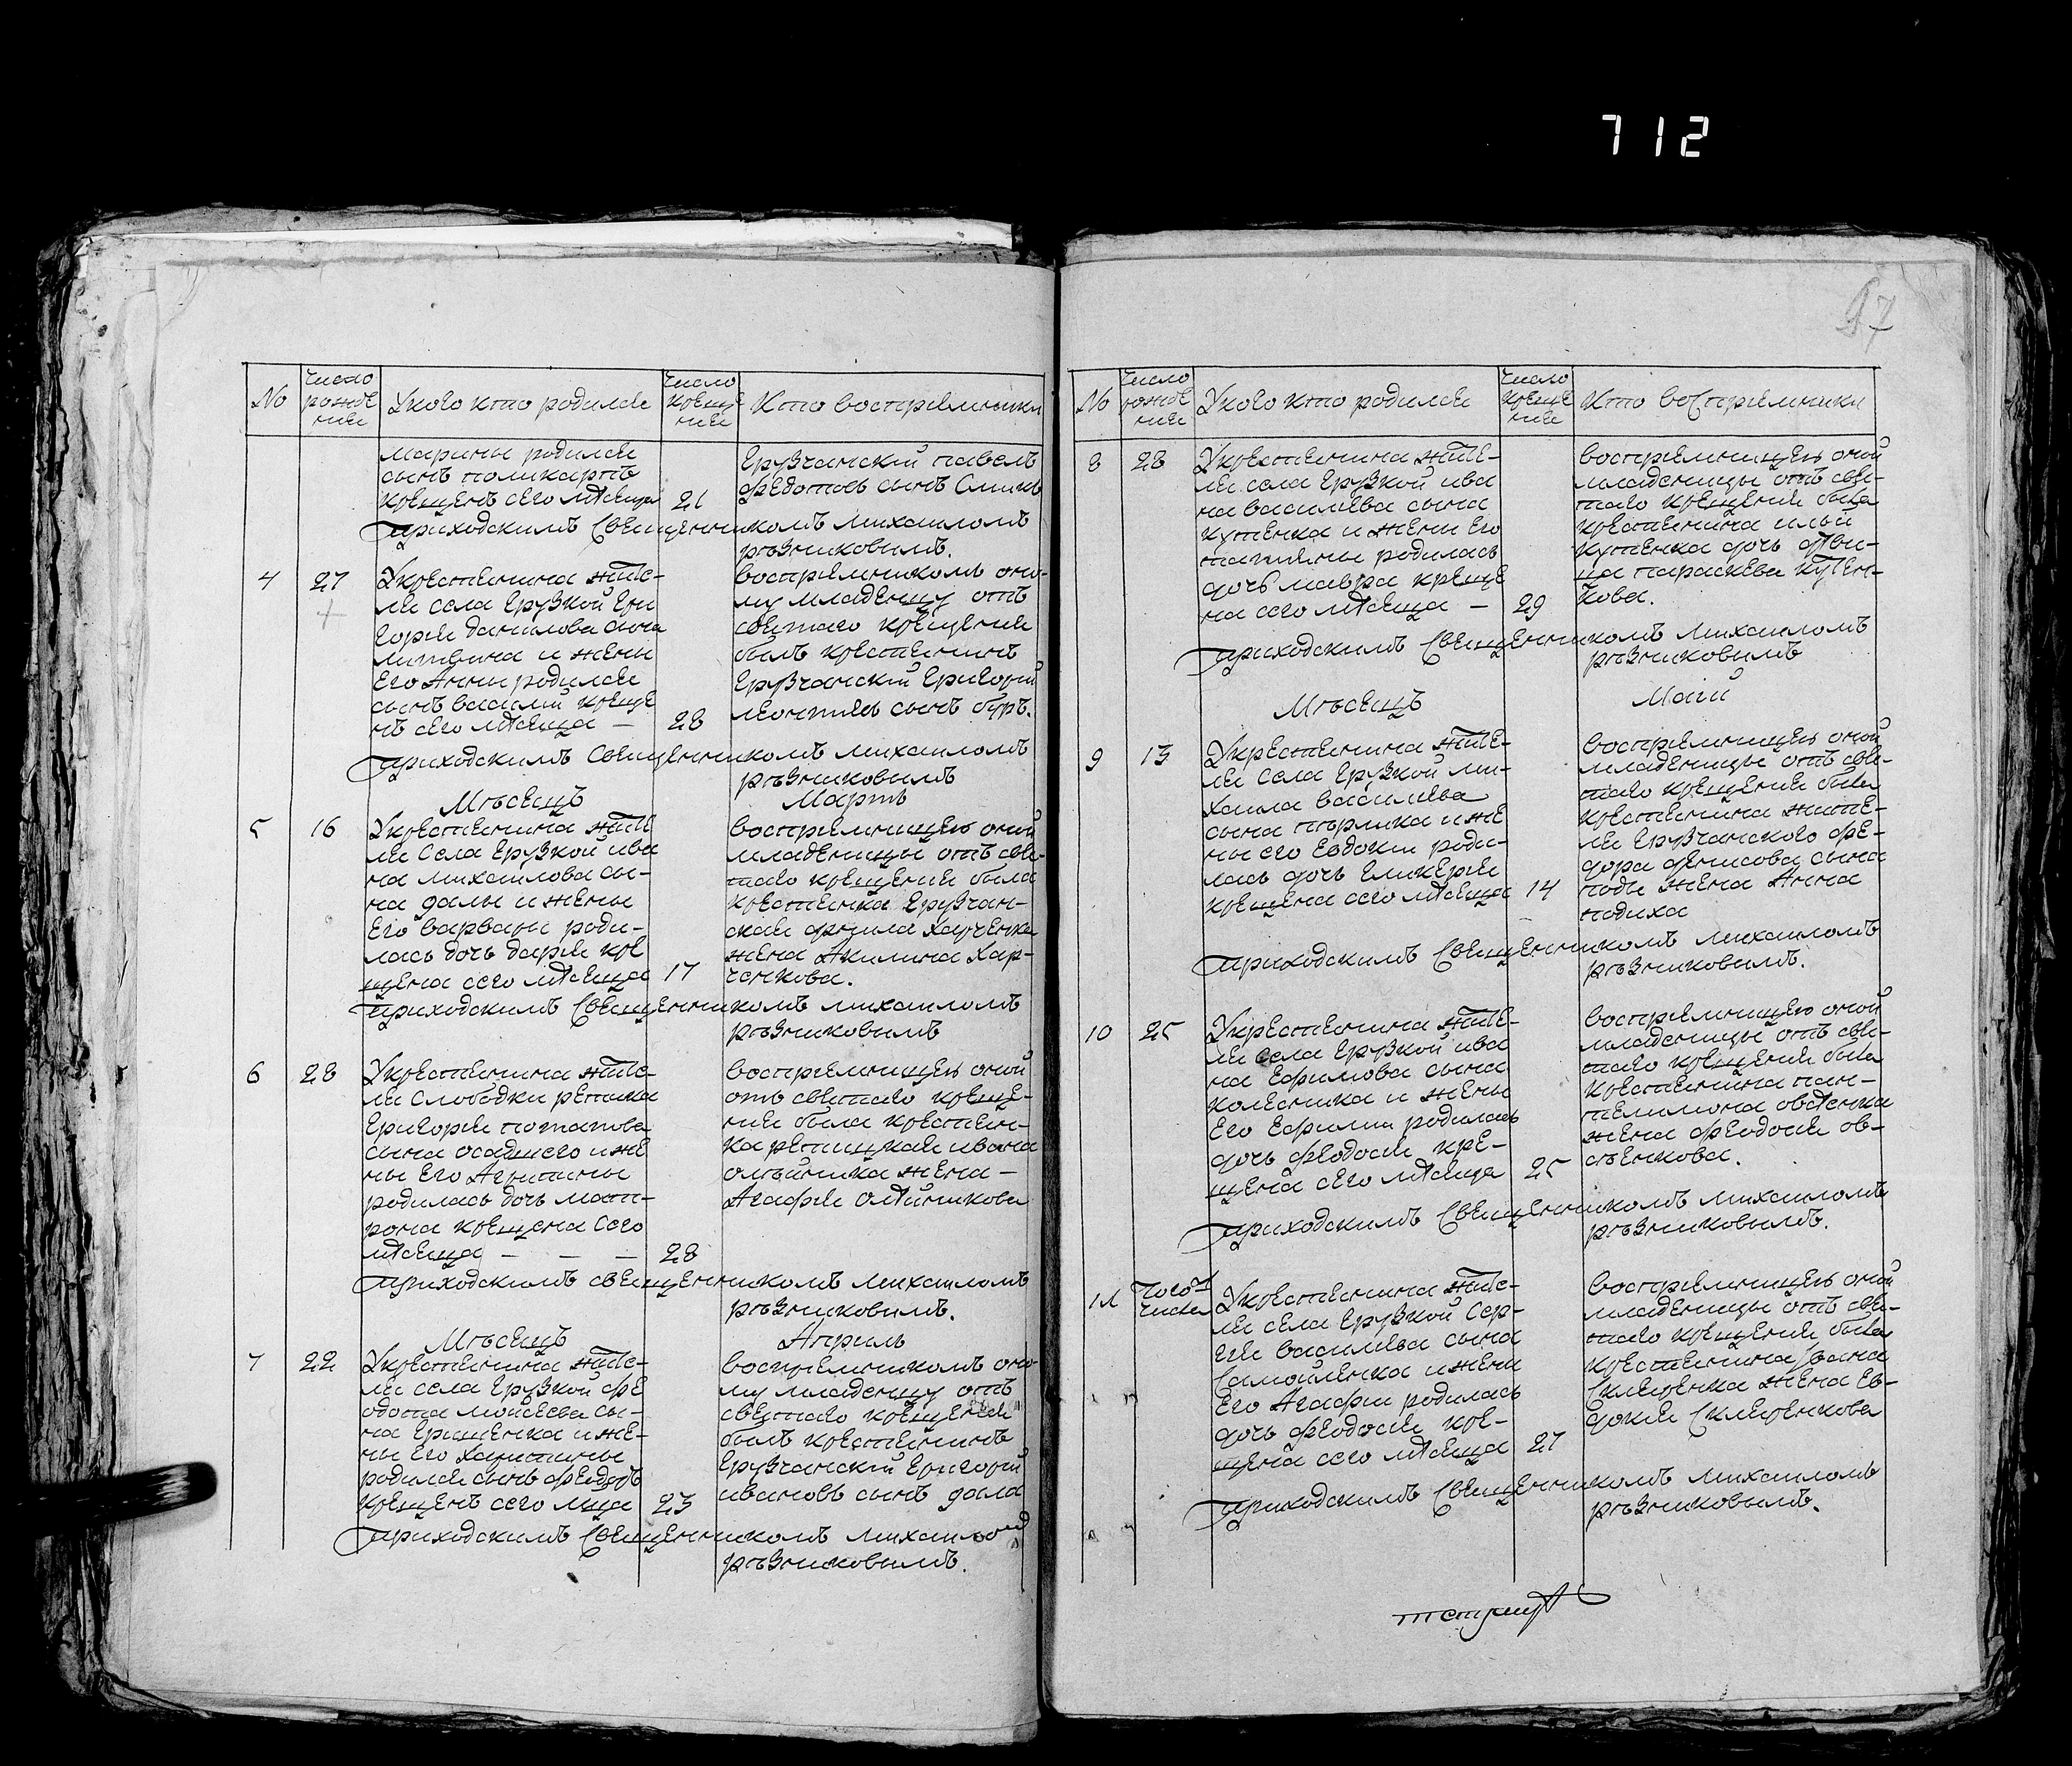 712
97
No
число рожде ния
У кого кто родился
число креще ния
Кто восприемники
марины родился
сынъ поликарпъ
крещенъ сего мѣсяца
21
Грузчанский павелъ
федотовъ сынъ
Приходскимъ Священникомъ михаиломъ
рѣзниковымъ.
4
27
У крестянина жите-
ля села Грузкой Гри
горія данилова сына
литвина и жены
Его Анны родился
сынъ василий креще
нъ сего мѣсяца –
28
восприемникомъ оно-
му младенцу отъ
святаго крещения
былъ крестянинъ
Грузчанский Григорий
леонтиевъ сынъ буръ.
Приходскимъ Священникомъ михаиломъ
рѣзниковымъ
Мѣсяцъ
Мартъ
5
16
У крестянина жите
ля Села Грузкой ива
на михаилова сы-
на далы и жены
Его варвары роди-
лась дочь дария кре
щена сего мѣсяца
17
восприемницею оной
младеницы отъ свя-
таго крещения была
крестянка Грузчан-
ская
жена Акилина Хар-
ченкова.
Приходскимъ Священникомъ михаиломъ
рѣзниковымъ
6
28
У крестянина жите-
ля Слободки репяшка
Григория потапова
сына осадчего и же
ны Его Агрипины
родилась дочь мат-
рона крещена Сего
мѣсяца – – –
28
восприемницею оной
отъ святаго креще-
ния была крестян-
ка репицкая ивана
олѣйника жена –
Агафия олѣйникова
приходскимъ священникомъ михаиломъ
рѣзниковымъ.
Мѣсяцъ
Априль
7
22
У крестянина жите-
ля села Грузкой фе
одота моисеева сы-
на Грищенка и же-
ны Его Харитины
родился сынъ феодоръ
крещенъ сего мца
23
восприемникомъ оно-
му младенцу отъ
святаго крещения
былъ крестянинъ
Грузчанский Григорий
ивановъ сынъ дала
Приходскимъ Священникомъ михаиломъ
рѣзниковымъ.
No
число рожде ния
У кого кто родился
число креще ния
Кто восприемники
8
28
У крестянина жите-
ля села Грузкой ива
на василиева сына
кутенка и жены Его
татияны родилась
дочь мавра креще
на сего мѣсяца –
29
восприемницею оной
младеницы отъ свя-
таго крещения была
крестянина илыи
кутенка дочь дѣви-
ца параскева кутен-
кова.
Приходскимъ Священникомъ михаиломъ
рѣзниковымъ
Мѣсяцъ
Маий
9
13
У крестянина жите-
ля села Грузкой ми-
хаила василиева
сына и же
ны его Евдокии роди-
лась дочь Гликерия
крещена сего мѣсяца
14
восприемницею оной
младеницы отъ свя-
таго крещения была
крестянина жите-
ля Грузчанского фе-
дора денисова сына
поды жена Анна
подиха
Приходскимъ Священникомъ михаиломъ
рѣзниковымъ.
10
25
У крестянина жите-
ля села Грузкой ива
на Ефимова сына
колесника и жены
Его Ефимии родилась
дочь феодосия кре-
щена сего мѣсяца
25
восприемницею оной
младеницы отъ свя-
таго крещения была
крестянина пан-
телимона овсѣенка
жена феодосия ов-
сѣенкова.
Приходскимъ Священникомъ михаиломъ
рѣзниковымъ.
11
тогожъ числа
У крестянина жите-
ля села Грузкой Сер-
гия василиева сына
Самойленка и жены
Его Агафии родилась
дочь феодосия кре-
щена сего мѣсяца
27
восприемницею оной
младеницы отъ свя-
таго крещения была
крестянина ивана
Скляренка жена Ев-
докия Скляренкова
Приходскимъ Священникомъ михаиломъ
рѣзниковымъ.